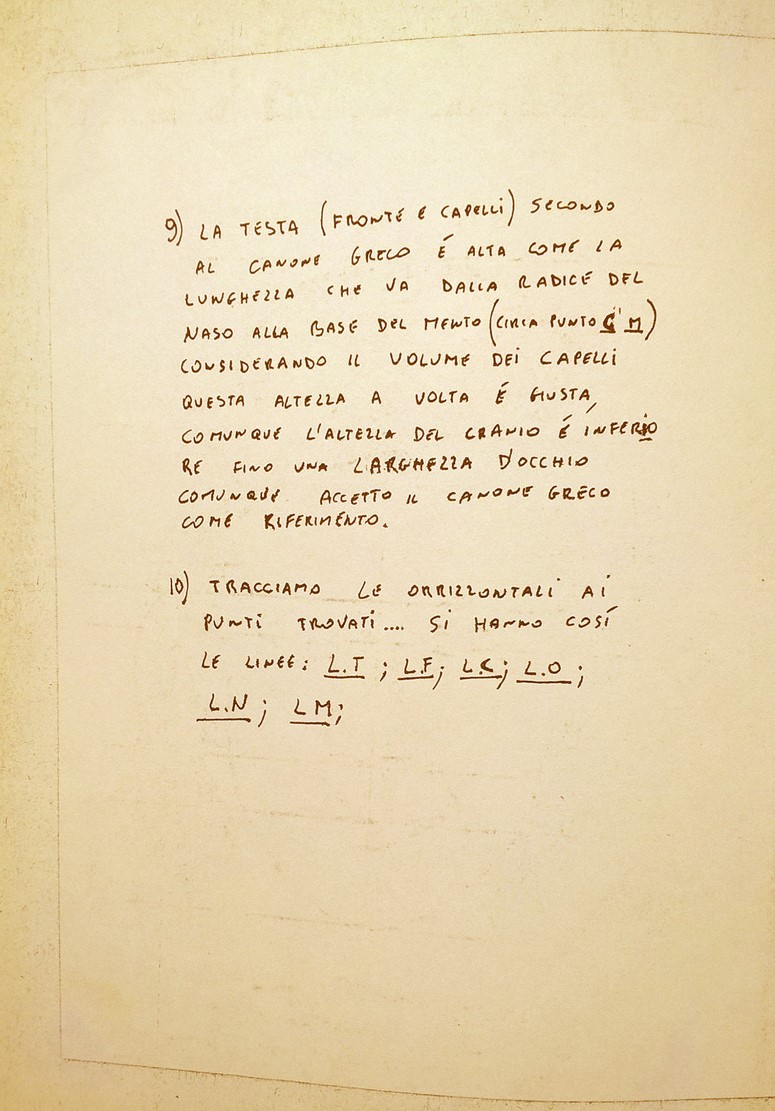 9) LA TESTA (FRONTE E CAPELLI) SECONDO
AL CANONE GRECO É ALTA COME LA
LUNGHEZZA CHE VA DALLA RADICE DEL
NASO ALLA BASE DEL MENTO (CIRCA PUNTO C' M)
CONSIDERANDO IL VOLUME DEI CAPELLI
QUESTA ALTEZZA A VOLTA É GIUSTA,
COMUNQUE L'ALTEZZA DEL CRANIO É INFERIO
RE FINO UNA LARGHEZZA D'OCCHIO
COMUNQUE ACCETTO IL CANONE GRECO
COME RIFERIMENTO.
10) TRACCIAMO LE ORRIZZONTALI AI
PUNTI TROVATI.... SI HANNO COSÍ
LE LINEE: L.T ; L.F; L.C; L.O ;
L.N ; L M;